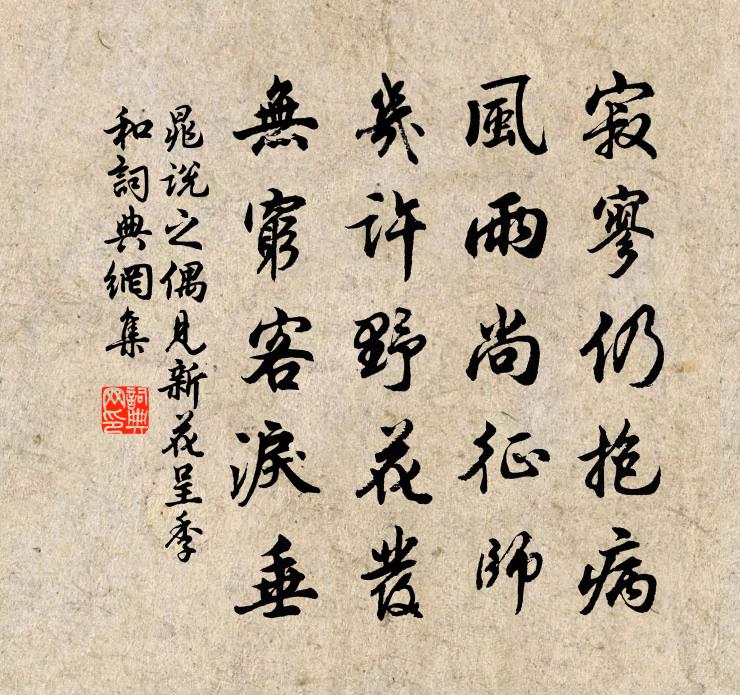 寂寥仍抱病
風雨尚征師
幾許野花發
無窮客淚垂
晁说之偶見新花呈季
和詞典網集
詞典网印